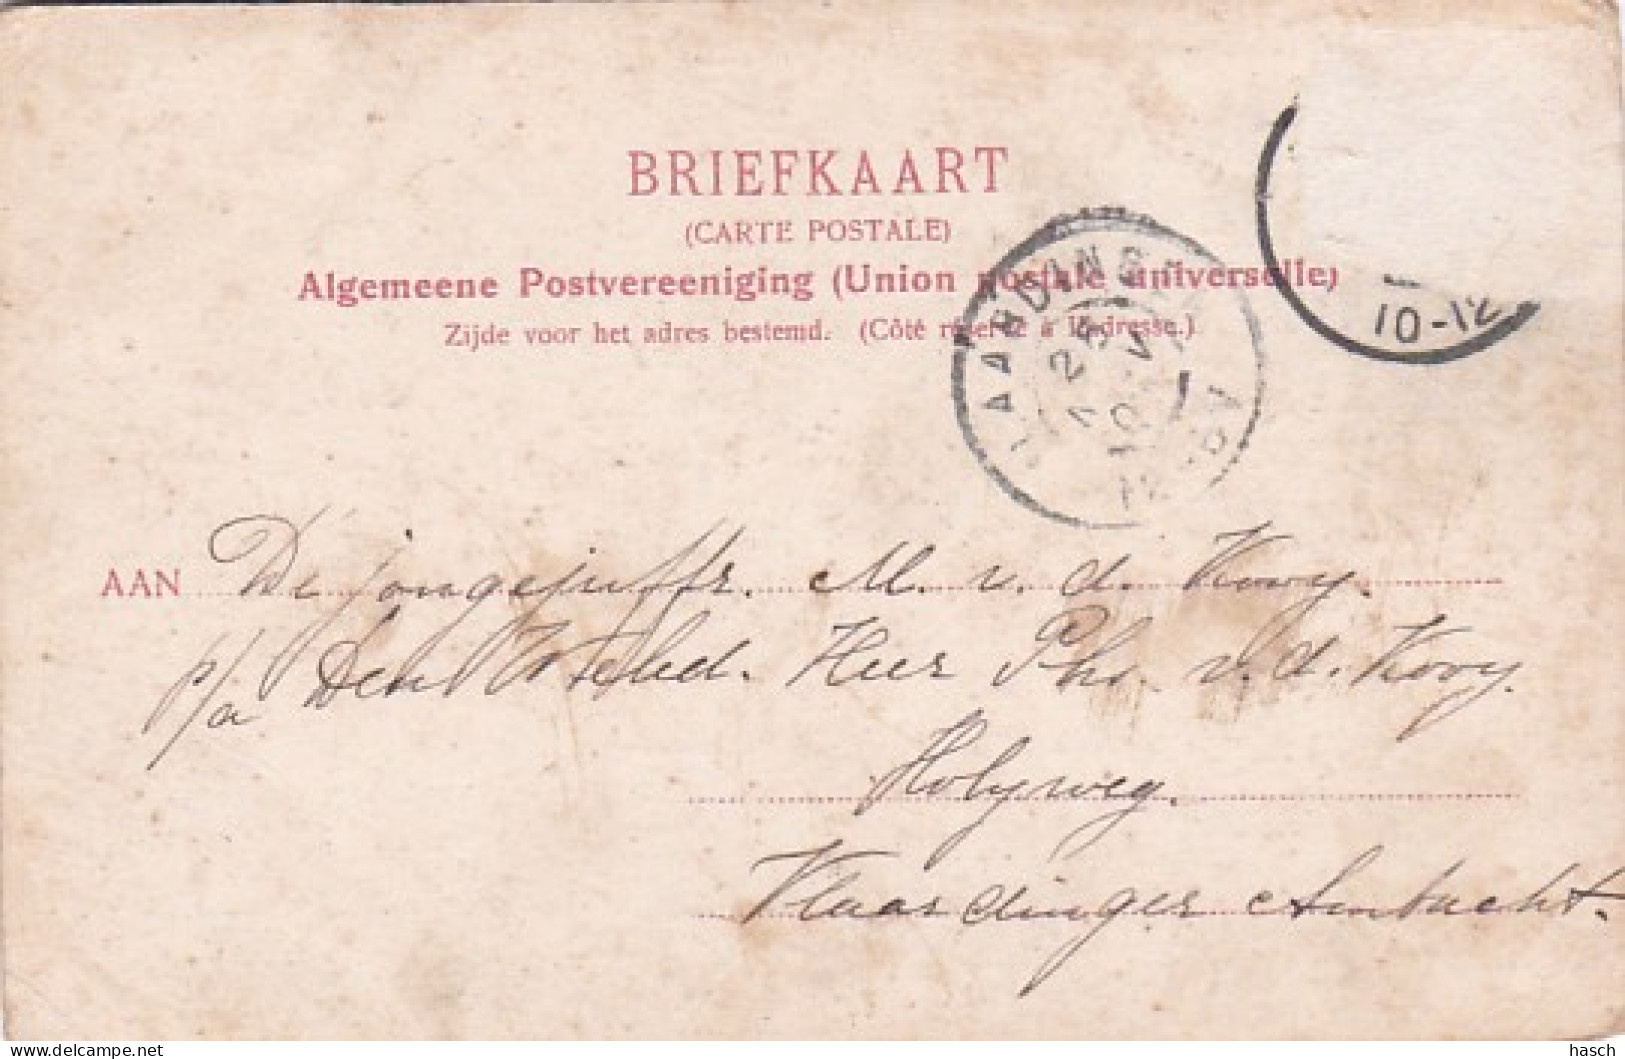 BRIEFKAART
(CARTE POSTALE)
Algemeene Postvereeniging (Union postale universelle)
Zijde voor het adres bestemd. (Côté réservé à l'adresse.)
VLAARDINGEN
25
10-12
AAN De jongejuffr. M. v. d. Kooy.
p/a Den WelEd. Heer Ph. v. d. Kooy.
Holyweg.
Vlaardinger Ambacht.
hasch
© www.delcampe.net